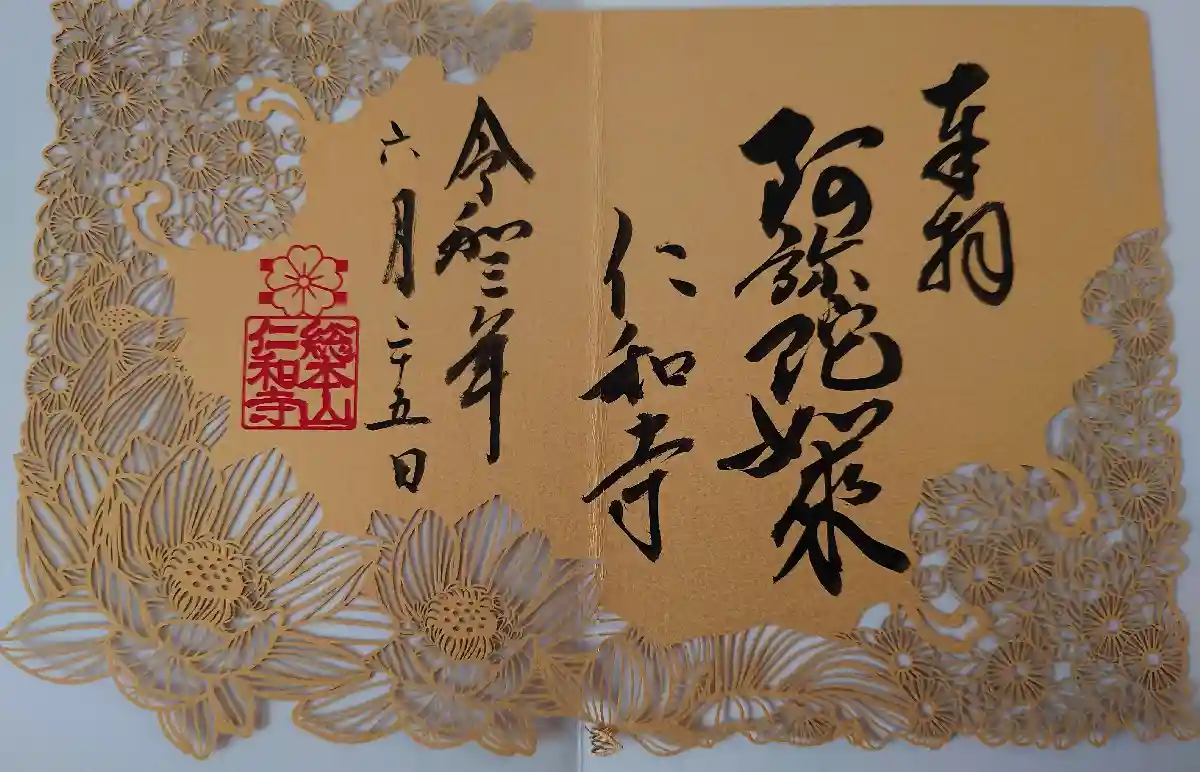 奉拝
阿弥陀如来
仁和寺
令和三年
六月二十五日
総本山
仁和寺